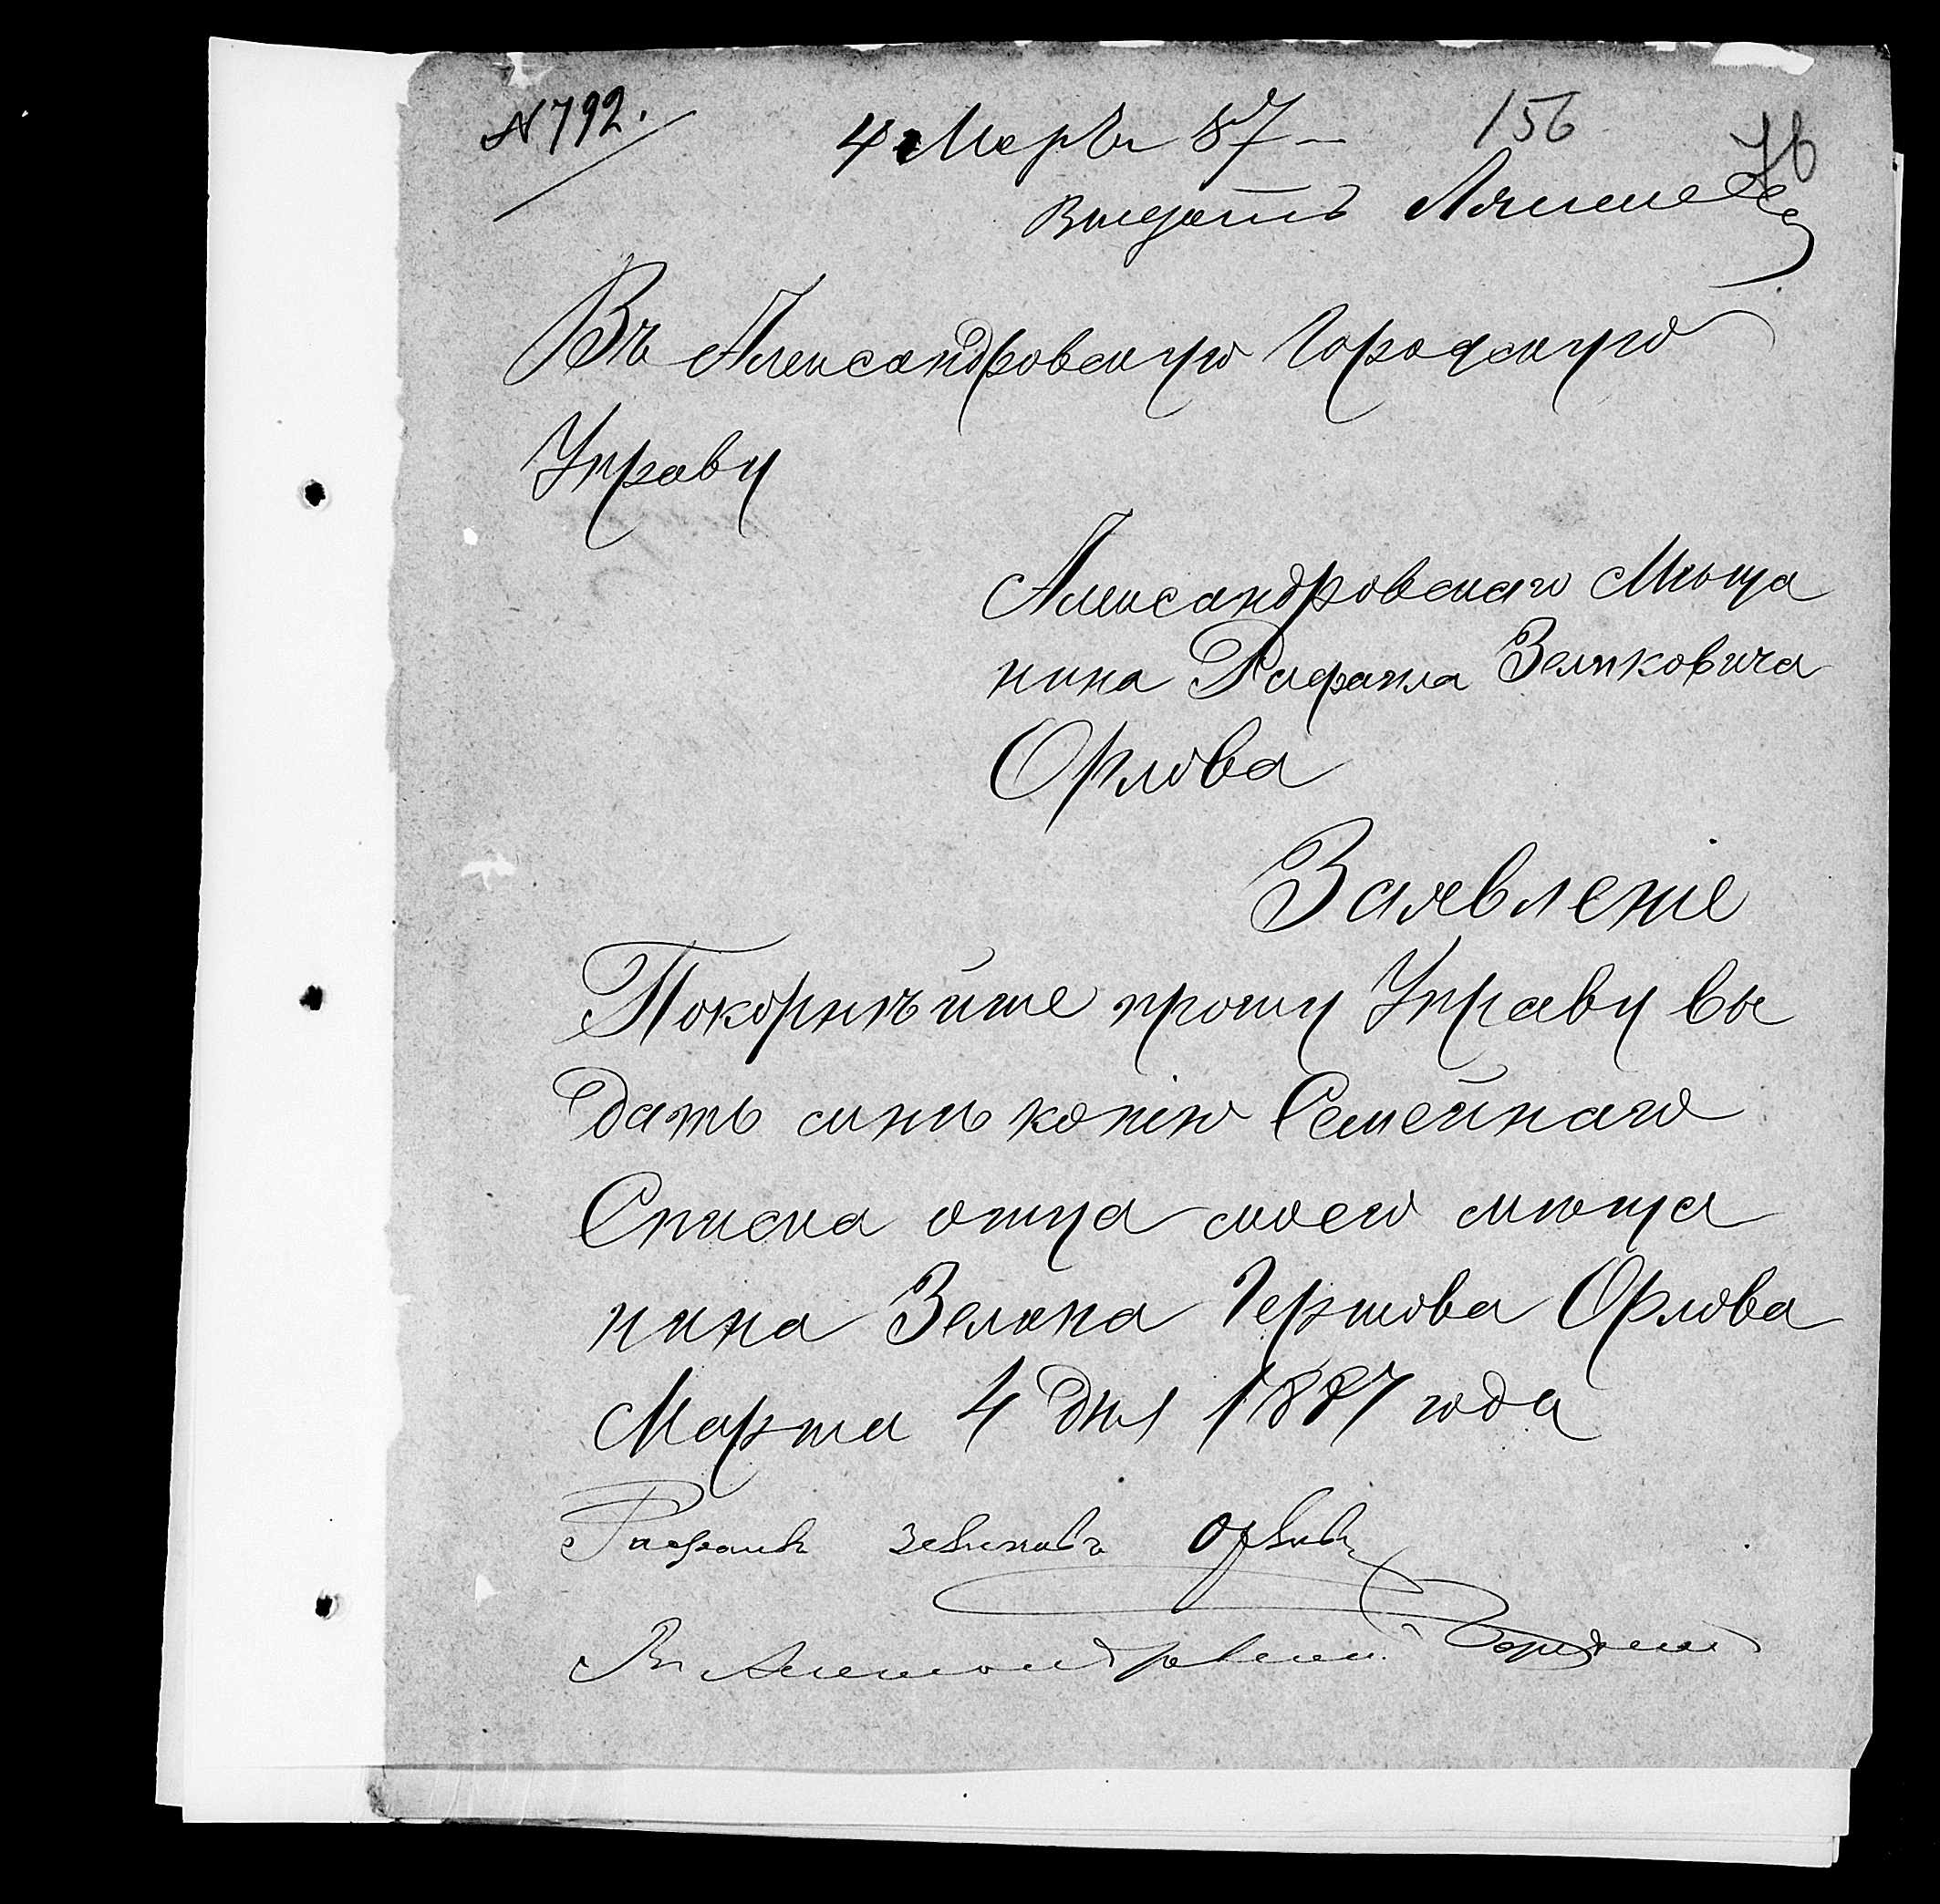 № 792.
4 Мартъ 87 — 156 76
Выдать
Въ Александровскую Городскую
Управу
Александровскаго Мѣща
нина Рафаила Зеликовича
Орлова
Заявленіе
Покорнѣйше прошу Управу вы
дать мнѣ копію Семейнаго
Списка отца моего мѣща
нина Зелика Гершова Орлова
Марта 4 дня 1887 года
Рафаилъ Зеликовъ Орловъ